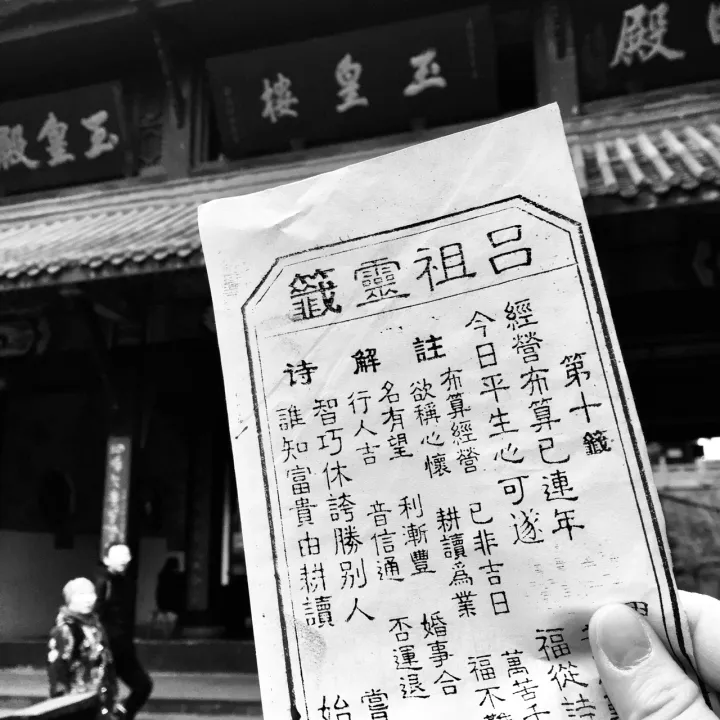 玉皇樓
玉皇殿
殿
呂祖靈籤
第十籤
經營布算已連年
今日平生心可遂 福從詩
註
布算經營 已非吉日 萬苦
欲稱心懷 耕讀爲業 福不難
解
名有望 利漸豐 婚事合
行人吉 音信通 否運退
诗
智巧休誇勝別人 嘗
誰知富貴由耕讀 始